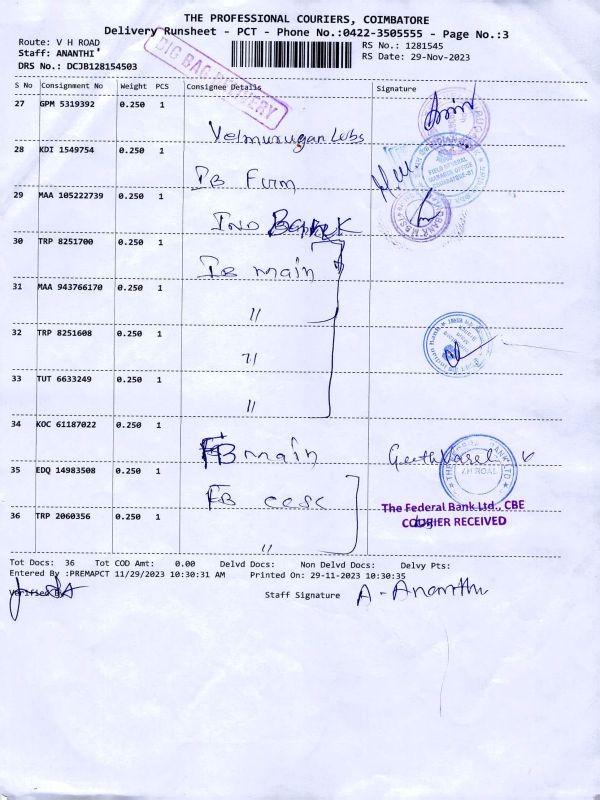 THE PROFESSIONAL COURIERS, COIMBATORE
Delivery Runsheet - PCT - Phone No.:0422-3505555 - Page No.:3
Route: V H ROAD
RS No.: 1281545
Staff: ANANTHI
RS Date: 29-Nov-2023
DRS No.: DCJB128154503
BIG BAG DELIVERY
S No Consignment No Weight PCS Consignee Details Signature
27 GPM 5319392 0.250 1
Velmurugan Lubs
28 KDI 1549754 0.250 1
IB Furm
29 MAA 105222739 0.250 1
IND Bank
30 TRP 8251700 0.250 1
IB main
31 MAA 943766170 0.250 1
"
32 TRP 8251608 0.250 1
"
33 TUT 6633249 0.250 1
"
34 KOC 61187022 0.250 1
FB main
35 EDQ 14983508 0.250 1
FB ccsc
The Federal Bank Ltd., CBE
COURIER RECEIVED
36 TRP 2060356 0.250 1
"
Tot Docs: 36 Tot COD Amt: 0.00 Delvd Docs: Non Delvd Docs: Delvy Pts:
Entered By :PREMAPCT 11/29/2023 10:30:31 AM Printed On: 29-11-2023 10:30:35
Verified By
Staff Signature A-Ananthi